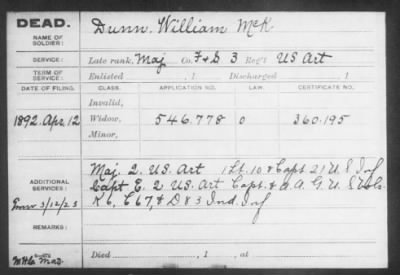 DEAD.
NAME OF SOLDIER: Dunn, William McK
SERVICE: Late rank, Maj Co. F & S 3 Reg't US Art
TERM OF SERVICE: Enlisted , 1 Discharged , 1
DATE OF FILING. CLASS. APPLICATION NO. LAW. CERTIFICATE NO.
Invalid,
1892. Apr. 12 Widow, 546.778 0 360.195
Minor,
ADDITIONAL SERVICES: Maj. 2. US. Art 1 Lt. 10 & Capt 21 U.S Inf
Capt E. 2 US. Art Capt. & A.A.G. U.S Vols
3/12/23 K 6, C 67, & D 83 Ind. Inf
REMARKS:
Died , 1 , at